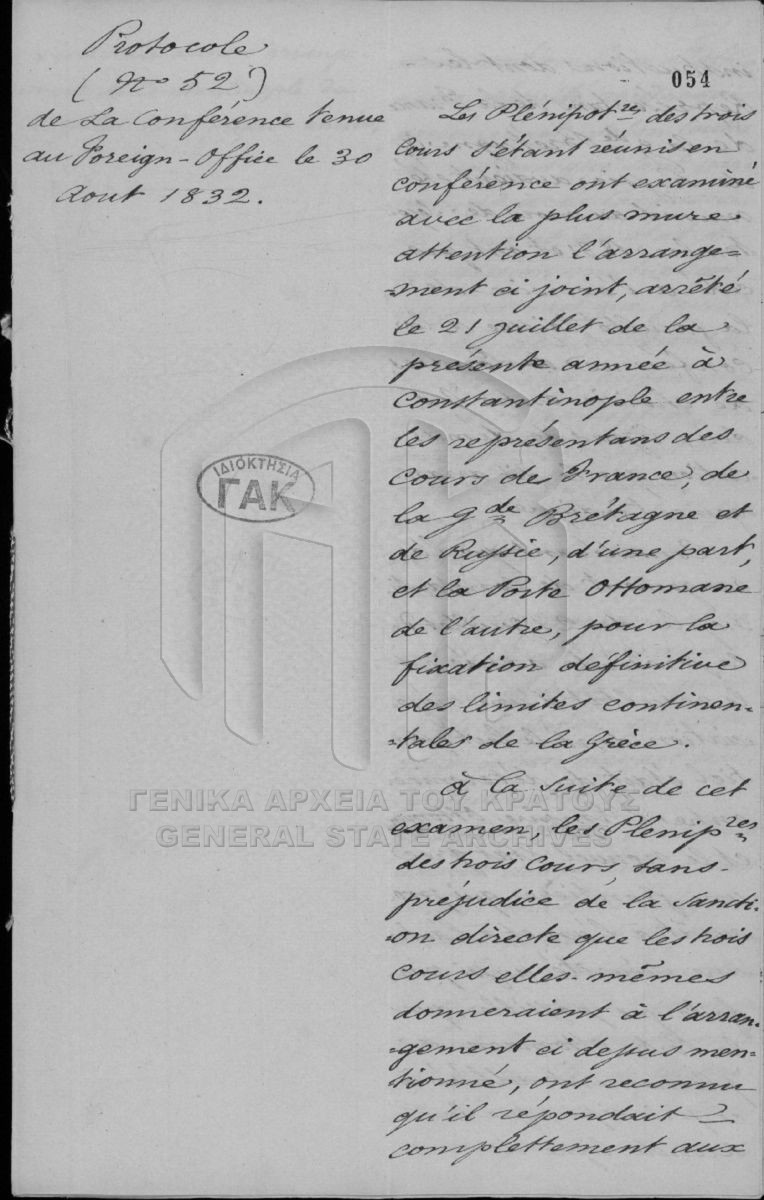 Protocole
(No 52)
de La Conférence tenue
au Foreign-Office le 30
Aout 1832.
054
Les Plénipotres des trois
Cours s'étant réunis en
conférence ont examiné
avec la plus mure
attention l'arrange=
=ment ci joint, arrêté
le 21 juillet de la
présente année à
Constantinople entre
les représentans des
Cours de France, de
la Gde Brétagne et
de Russie, d'une part,
et la Porte Ottomane
de l'autre, pour la
fixation définitive
des limites continen=
=tales de la Grèce.
À la suite de cet
examen, les Plenipres
des trois Cours, sans
préjudice de la Sancti=
=on directe que les trois
Cours elles-mêmes
donneraient à l'arran=
=gement ci dessus men=
tionné, ont reconnu
qu'il répondait
complettement aux
ΙΔΙΟΚΤΗΣΙΑ
ΓΑΚ
ΓΕΝΙΚΑ ΑΡΧΕΙΑ ΤΟΥ ΚΡΑΤΟΥΣ
GENERAL STATE ARCHIVES